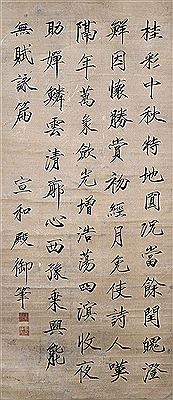 桂彩中秋特地圓况當餘閏魄澄
鮮因懷勝賞初經月免使詩人嘆
隔年萬象斂光增浩蕩四溟收夜
助嬋鱗雲清廓心西豫乘興能
無賦詠篇 宣和殿御筆